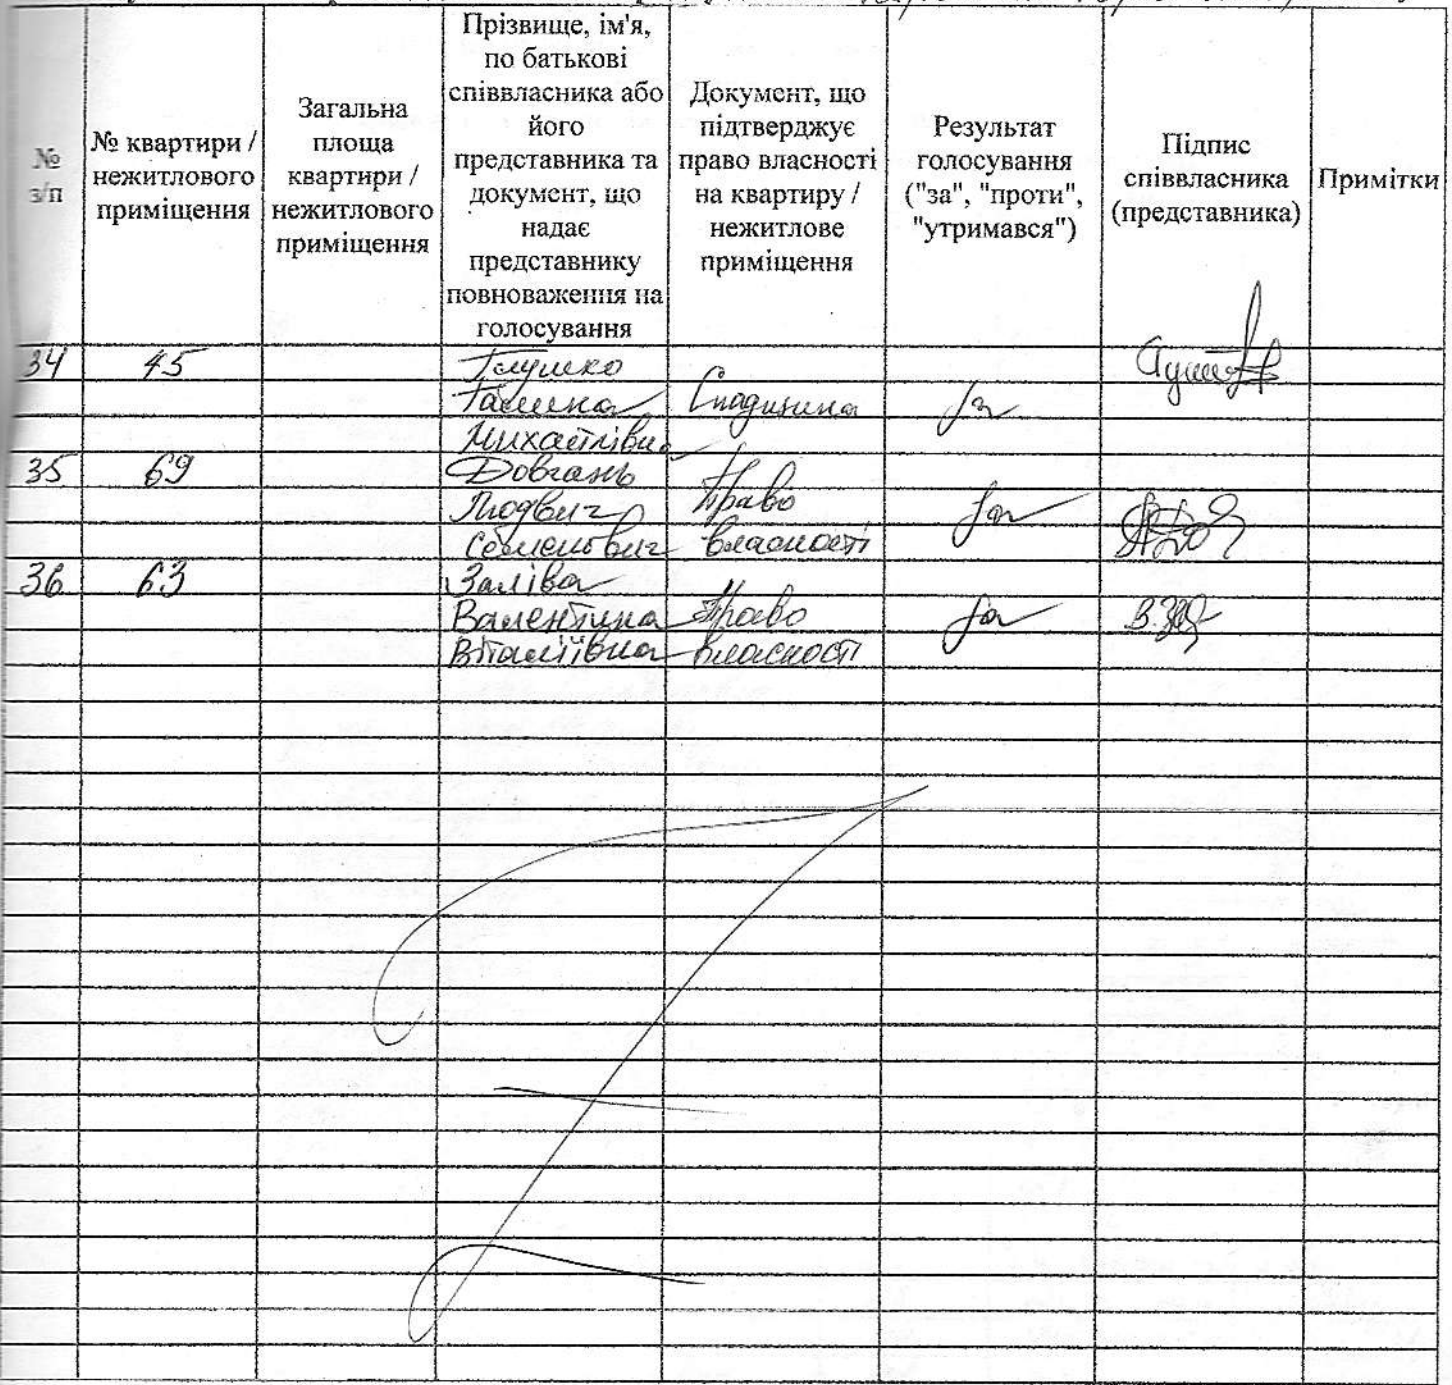 № з/п
№ квартири / нежитлового приміщення
Загальна площа квартири / нежитлового приміщення
Прізвище, ім'я, по батькові співвласника або його представника та документ, що надає представнику повноваження на голосування
Документ, що підтверджує право власності на квартиру / нежитлове приміщення
Результат голосування ("за", "проти", "утримався")
Підпис співвласника (представника)
Примітки
34 45 Глушко
Галина Спадщина за
Михайлівна
35 69 Довгань
Людвиг Право за
Семенович власності
36 63 Заліва
Валентина Право за
Віталіївна власності